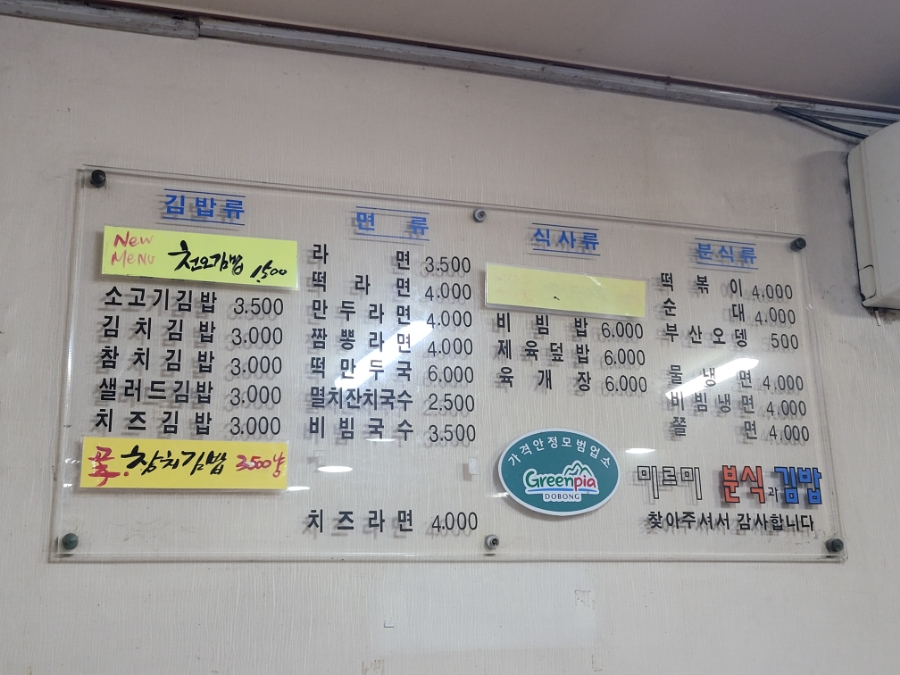 김밥류
New
MeNU 천오김밥 1,500
소고기김밥 3.500
김치김밥 3.000
참치김밥 3.000
샐러드김밥 3.000
치즈김밥 3.000
참치김밥 3.500
면류
라면 3.500
떡라면 4.000
만두라면 4.000
짬뽕라면 4.000
떡만두국 6.000
멸치잔치국수 2.500
비빔국수 3.500
치즈라면 4.000
식사류
비빔밥 6.000
제육덮밥 6.000
육개장 6.000
가격안정모범업소
Greenpia
DOBONG
분식류
떡볶이 4.000
순대 4.000
부산오뎅 500
물냉면 4.000
비빔냉면 4.000
쫄면 4.000
미르미 분식과김밥
찾아주셔서 감사합니다